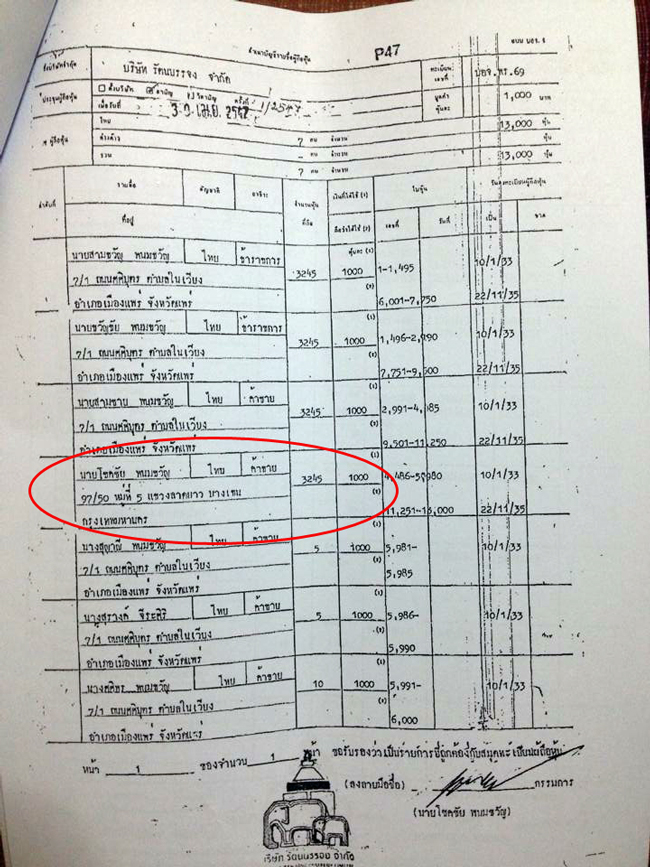 สำเนาบัญชีรายชื่อผู้ถือหุ้น
P47
แบบ บอจ. 5
ชื่อบริษัทจำกัด บริษัท รัตนบรรจง จำกัด ทะเบียนเลขที่ บอจ.พร.69
ประชุมผู้ถือหุ้น ตั้งบริษัท สามัญ วิสามัญ ครั้งที่ 1/2547 มูลค่าหุ้นละ 1,000 บาท
เมื่อวันที่ 30 เม.ย. 2547
ผู้ถือหุ้น ไทย 7 คน จำนวน 13,000 หุ้น
ต่างด้าว - คน จำนวน หุ้น
รวม 7 คน จำนวน 13,000 หุ้น
ลำดับที่ รายชื่อ สัญชาติ อาชีพ จำนวนหุ้นที่ถือ เงินที่ได้ใช้ (1) ใบหุ้น วันลงทะเบียนผู้ถือหุ้น
ที่อยู่ ถือว่าได้ใช้ (2) เลขที่ วันที่ เป็น ขาด
หุ้นละ (บ)
นายสามขวัญ พนมขวัญ ไทย ข้าราชการ 3245 1000 (1) 1-1,495 10/1/33
7/1 ถนนศศิบุตร ตำบลในเวียง (2)
อำเภอเมืองแพร่ จังหวัดแพร่ 6,001-7,750 22/11/35
นายขวัญชัย พนมขวัญ ไทย ข้าราชการ 3245 1000 (1) 1,496-2,990 10/1/33
7/1 ถนนศศิบุตร ตำบลในเวียง (2)
อำเภอเมืองแพร่ จังหวัดแพร่ 7,751-9,500 22/11/35
นายสามชาย พนมขวัญ ไทย ค้าขาย 3245 1000 (1) 2,991-4,485 10/1/33
7/1 ถนนศศิบุตร ตำบลในเวียง (2)
อำเภอเมืองแพร่ จังหวัดแพร่ 9,501-11,250 22/11/35
นายโชคชัย พนมขวัญ ไทย ค้าขาย 3245 1000 (1) 4,486-5,980 10/1/33
97/50 หมู่ที่ 5 แขวงลาดยาว บางเขน (2)
กรุงเทพมหานคร 11,251-13,000 22/11/35
นางสุญาณี พนมขวัญ ไทย ค้าขาย 5 1000 (1) 5,981- 10/1/33
7/1 ถนนศศิบุตร ตำบลในเวียง (2) 5,985
อำเภอเมืองแพร่ จังหวัดแพร่
นางสุรางค์ จีระศิริ ไทย ค้าขาย 5 1000 (1) 5,986- 10/1/33
7/1 ถนนศศิบุตร ตำบลในเวียง (2) 5,990
อำเภอเมืองแพร่ จังหวัดแพร่
นางศศิธร พนมขวัญ ไทย ค้าขาย 10 1000 (1) 5,991- 10/1/33
7/1 ถนนศศิบุตร ตำบลในเวียง (2) 6,000
อำเภอเมืองแพร่ จังหวัดแพร่
หน้า 1 ของจำนวน 1 หน้า ขอรับรองว่าเป็นรายการที่ถูกต้องกับสมุดทะเบียนผู้ถือหุ้น
(ลงลายมือชื่อ) กรรมการ
(นายโชคชัย พนมขวัญ)
บริษัท รัตนบรรจง จำกัด